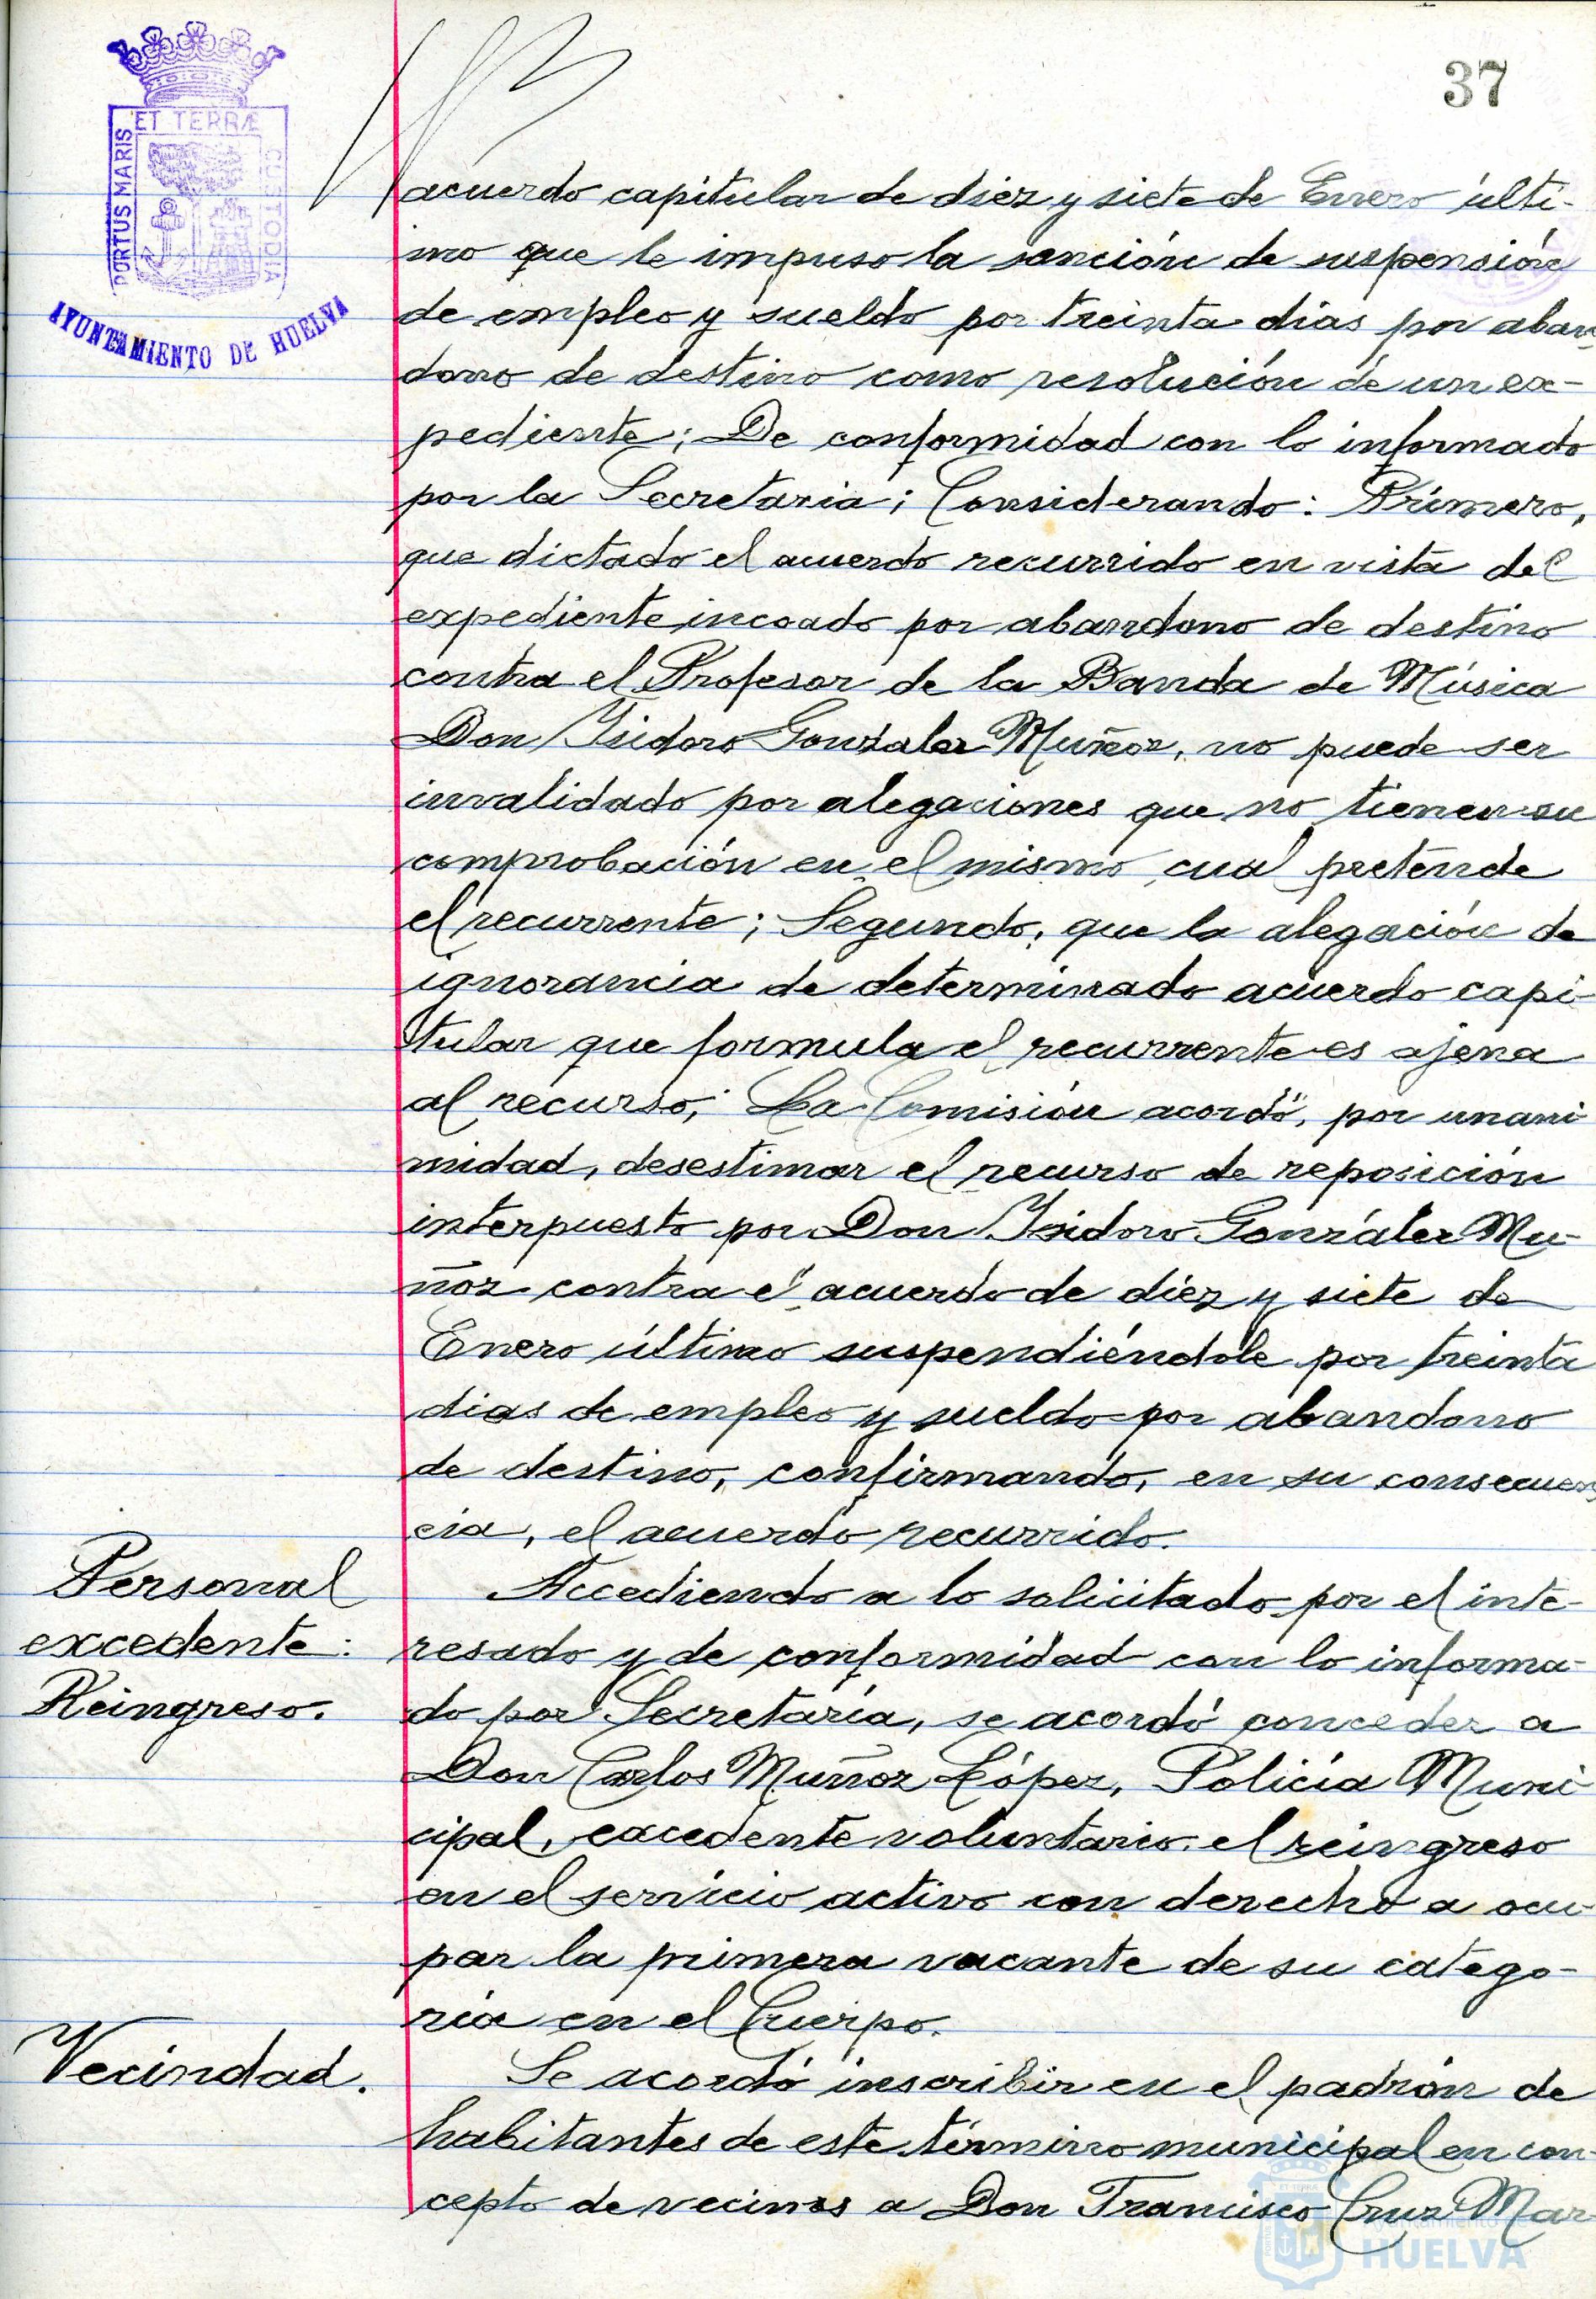 37
ET TERRÆ
PORTUS MARIS
CUSTODIA
AYUNTAMIENTO DE HUELVA
acuerdo capitular de diez y siete de Enero últi-
mo que le impuso la sanción de suspensión
de empleo y sueldo por treinta dias por aban
dono de destino como resolución de un ex-
pediente; De conformidad con lo informado
por la Secretaria; Considerando: Primero,
que dictado el acuerdo recurrido en vista del
expediente incoado por abandono de destino
contra el Profesor de la Banda de Música
Don Isidoro Gonzalez Muñoz, no puede ser
invalidado por alegaciones que no tienen su
comprobación en el mismo cual pretende
el recurrente; Segundo, que la alegación de
ignorancia de determinado acuerdo capi-
tular que formula el recurrente es ajena
al recurso; La Comisión acordó, por unani
midad, desestimar el recurso de reposición
interpuesto por Don Isidoro González Mu-
ñoz contra el acuerdo de diez y siete de
Enero último suspendiéndole por treinta
dias de empleo y sueldo por abandono
de destino, confirmando, en su consecuen
cia, el acuerdo recurrido.
Personal
excedente:
Reingreso.
Accediendo a lo solicitado por el inte-
resado y de conformidad con lo informa-
do por Secretaría, se acordó conceder a
Don Carlos Muñoz López, Policía Muni
cipal, excedente voluntario, el reingreso
en el servicio activo con derecho a ocu-
par la primera vacante de su catego-
ria en el Cuerpo.
Vecindad.
Se acordó inscribir en el padrón de
habitantes de este término municipal en con-
cepto de vecinos a Don Francisco Cruz Mar
HUELVA